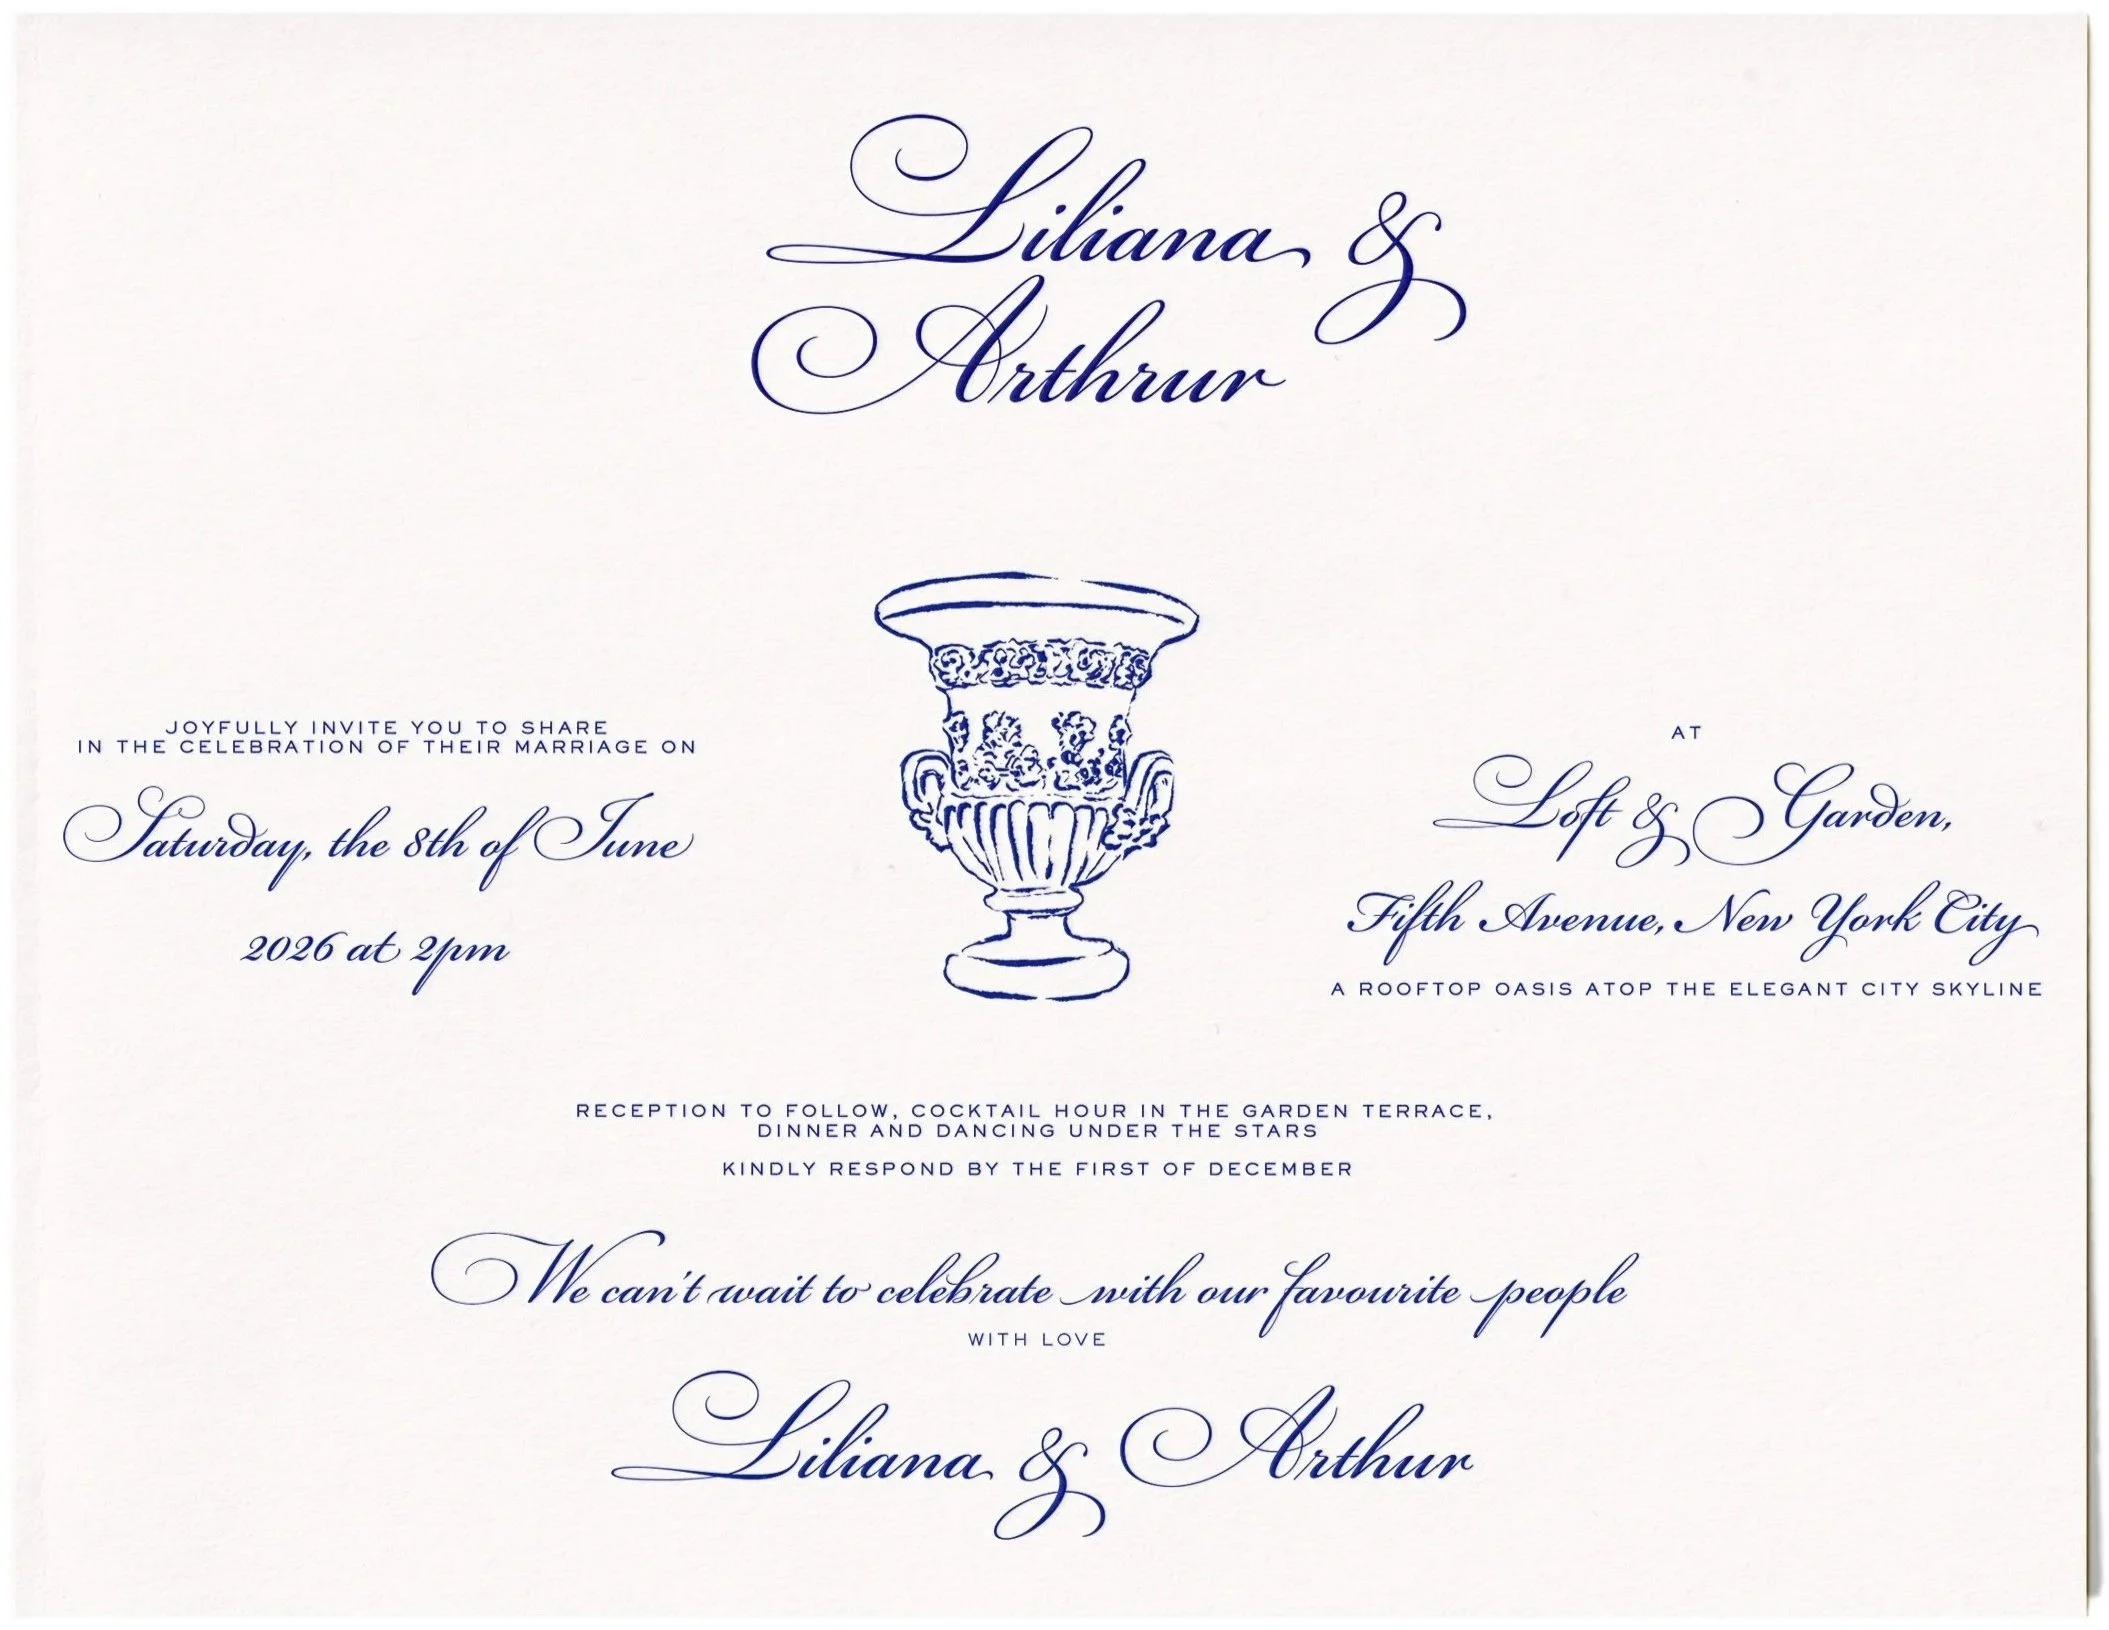 Liliana &
Arthrur
JOYFULLY INVITE YOU TO SHARE
IN THE CELEBRATION OF THEIR MARRIAGE ON
Saturday, the 8th of June
2026 at 2pm
AT
Loft & Garden,
Fifth Avenue, New York City
A ROOFTOP OASIS ATOP THE ELEGANT CITY SKYLINE
RECEPTION TO FOLLOW, COCKTAIL HOUR IN THE GARDEN TERRACE,
DINNER AND DANCING UNDER THE STARS
KINDLY RESPOND BY THE FIRST OF DECEMBER
We can't wait to celebrate with our favourite people
WITH LOVE
Liliana & Arthur